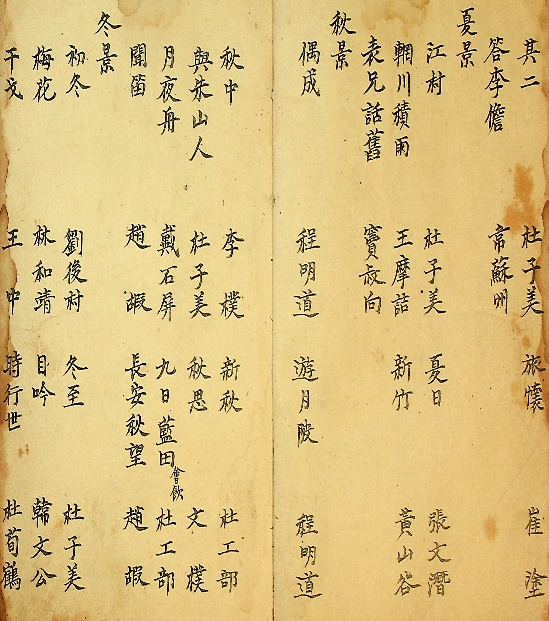 其二 杜子美 旅懷 崔塗
答李儋 韋蘇州
夏景
江村 杜子美 夏日 張文潛
輞川積雨 王摩詰 新竹 黃山谷
表兄話舊 竇叔向
秋景
偶成 程明道 遊月陂 程明道
秋中 李樸 新秋 杜工部
與朱山人 杜子美 秋思 文
月夜舟 戴石屏 九日藍田會飲 杜工部
聞笛 趙嘏 長安秋望 趙嘏
冬景
初冬 劉後村 冬至 杜子美
梅花 林和靖 自吟 韓文公
干戈 王中 時行世 杜荀鶴